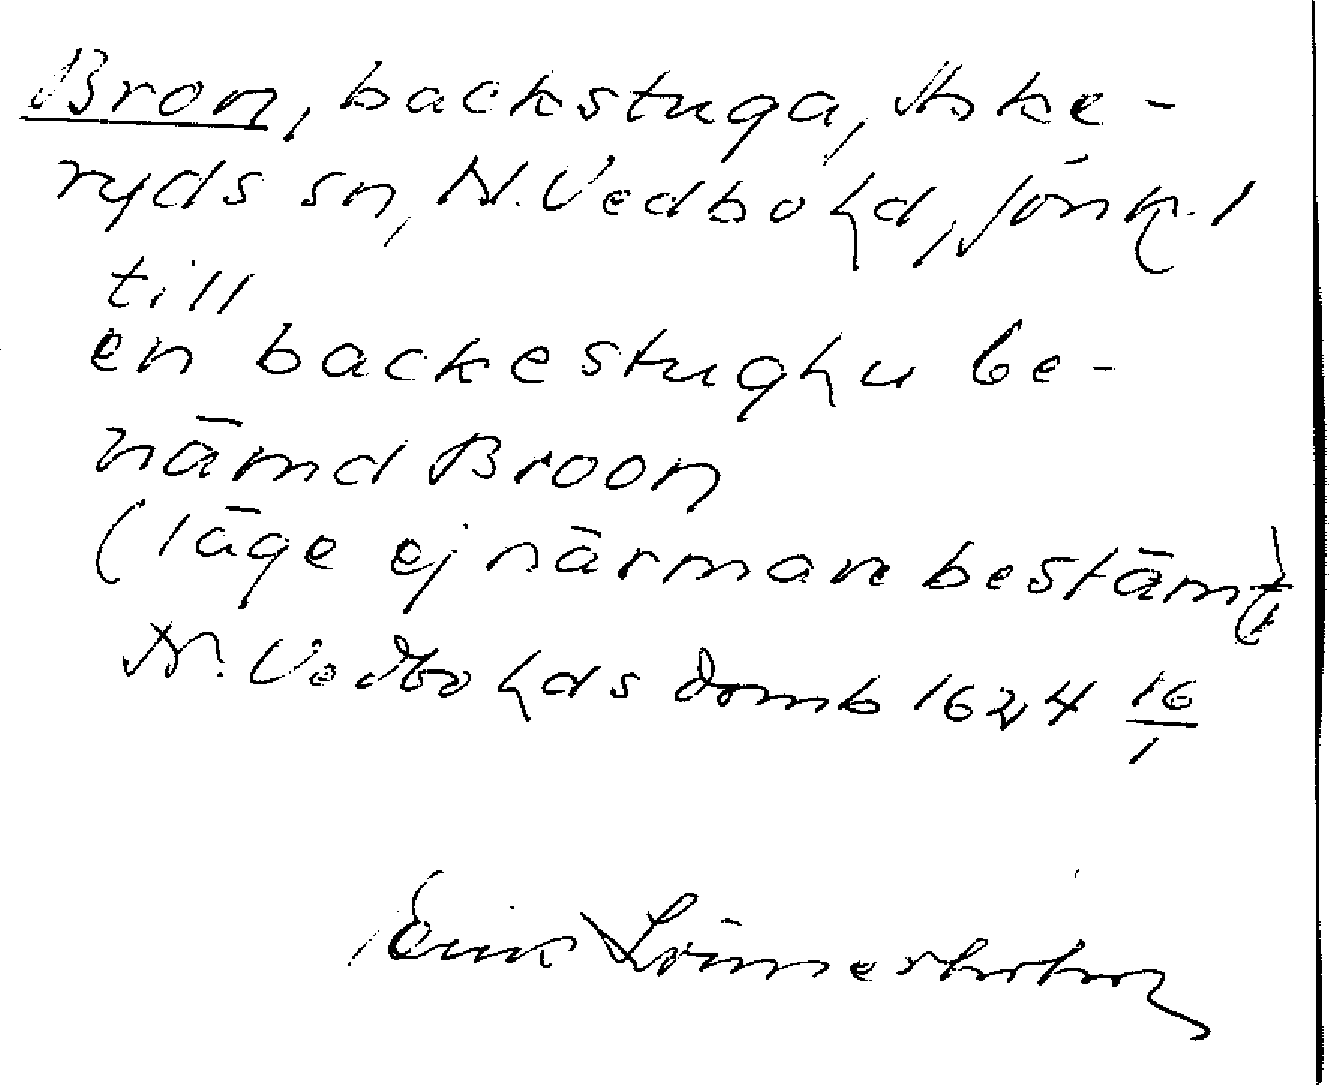 Bron, backstuga, Aske-
ryds sn, N. Vedbohd, Jönk. l
till
en backestughu be-
nämd Broon
(läge ej närmare bestämt)
N. Vedbohds domb 1624 16/1
Erik Lönnerholm